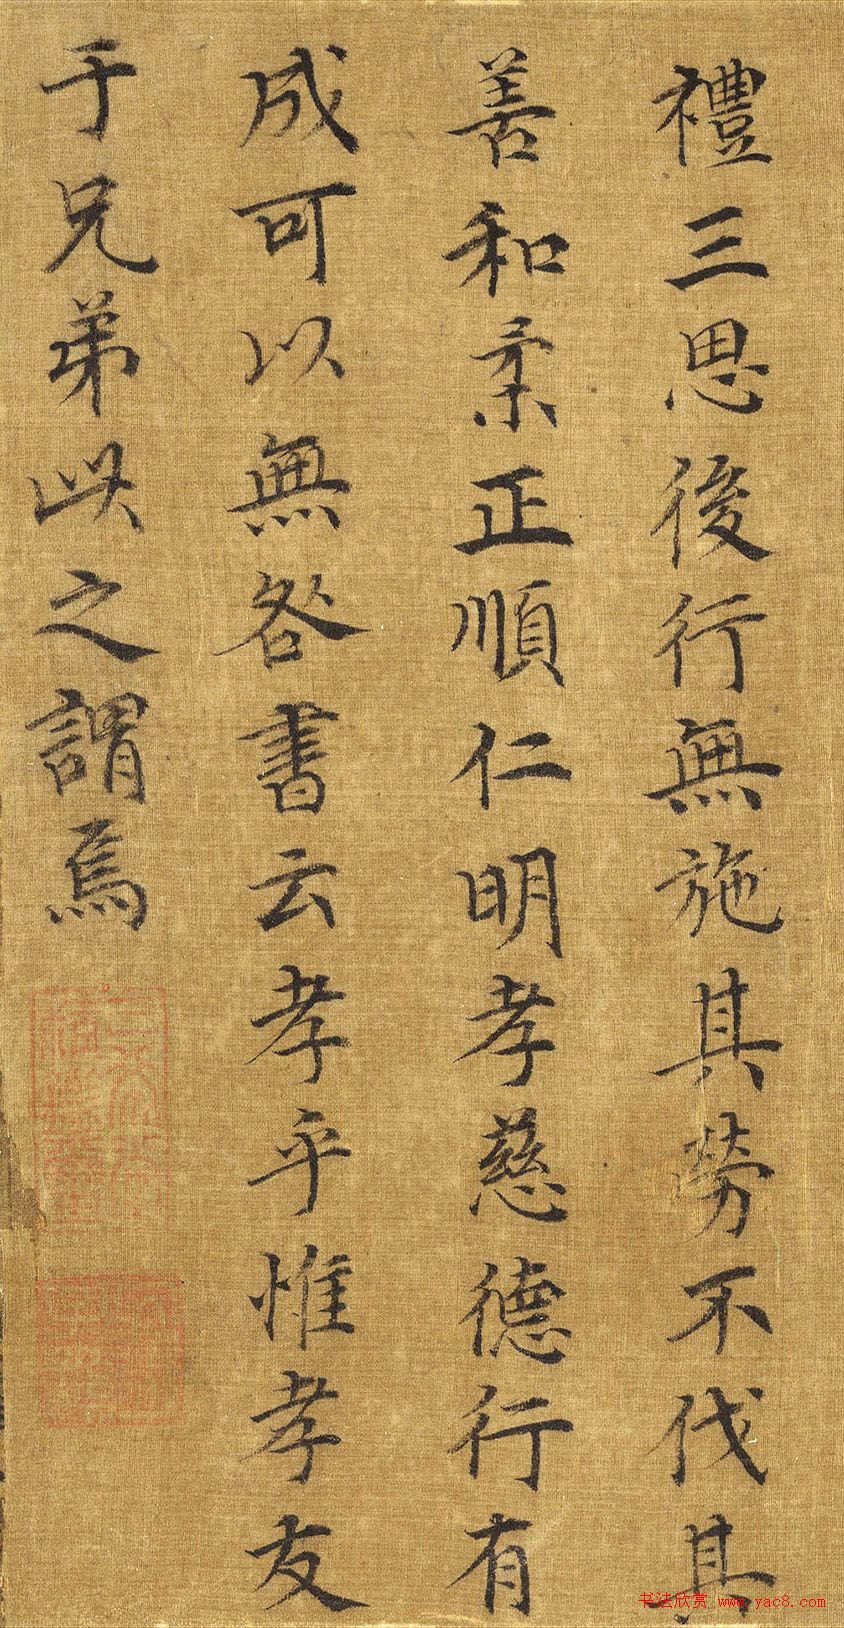 禮三思後行無施其勞不伐其
善和柔正順仁明孝慈德行有
成可以無咎書云孝乎惟孝友
于兄弟此之謂焉
书法欣赏 www.yac8.com